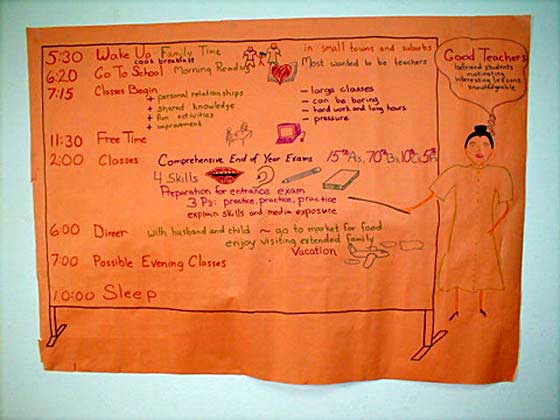 5:30 Wake Up Family Time
cook breakfast
in small towns and suburbs
6:20 Go To School Morning Reading
Most wanted to be teachers
7:15 Classes Begin
+ personal relationships
+ shared knowledge
+ fun activities
+ improvement
- large classes
- can be boring
- hard work and long hours
- pressure
11:30 Free Time
2:00 Classes Comprehensive End of Year Exams 15% As, 70% Bs, 10% Cs, 5%
4 Skills
Preparation for entrance exam
3 Ps: practice, practice, practice
explain skills and media exposure
6:00 Dinner with husband and child ~ go to market for food
enjoy visiting extended family
Vacation
7:00 Possible Evening Classes
10:00 Sleep
Good Teachers
befriend students
motivating
interesting lessons
knowledgeable